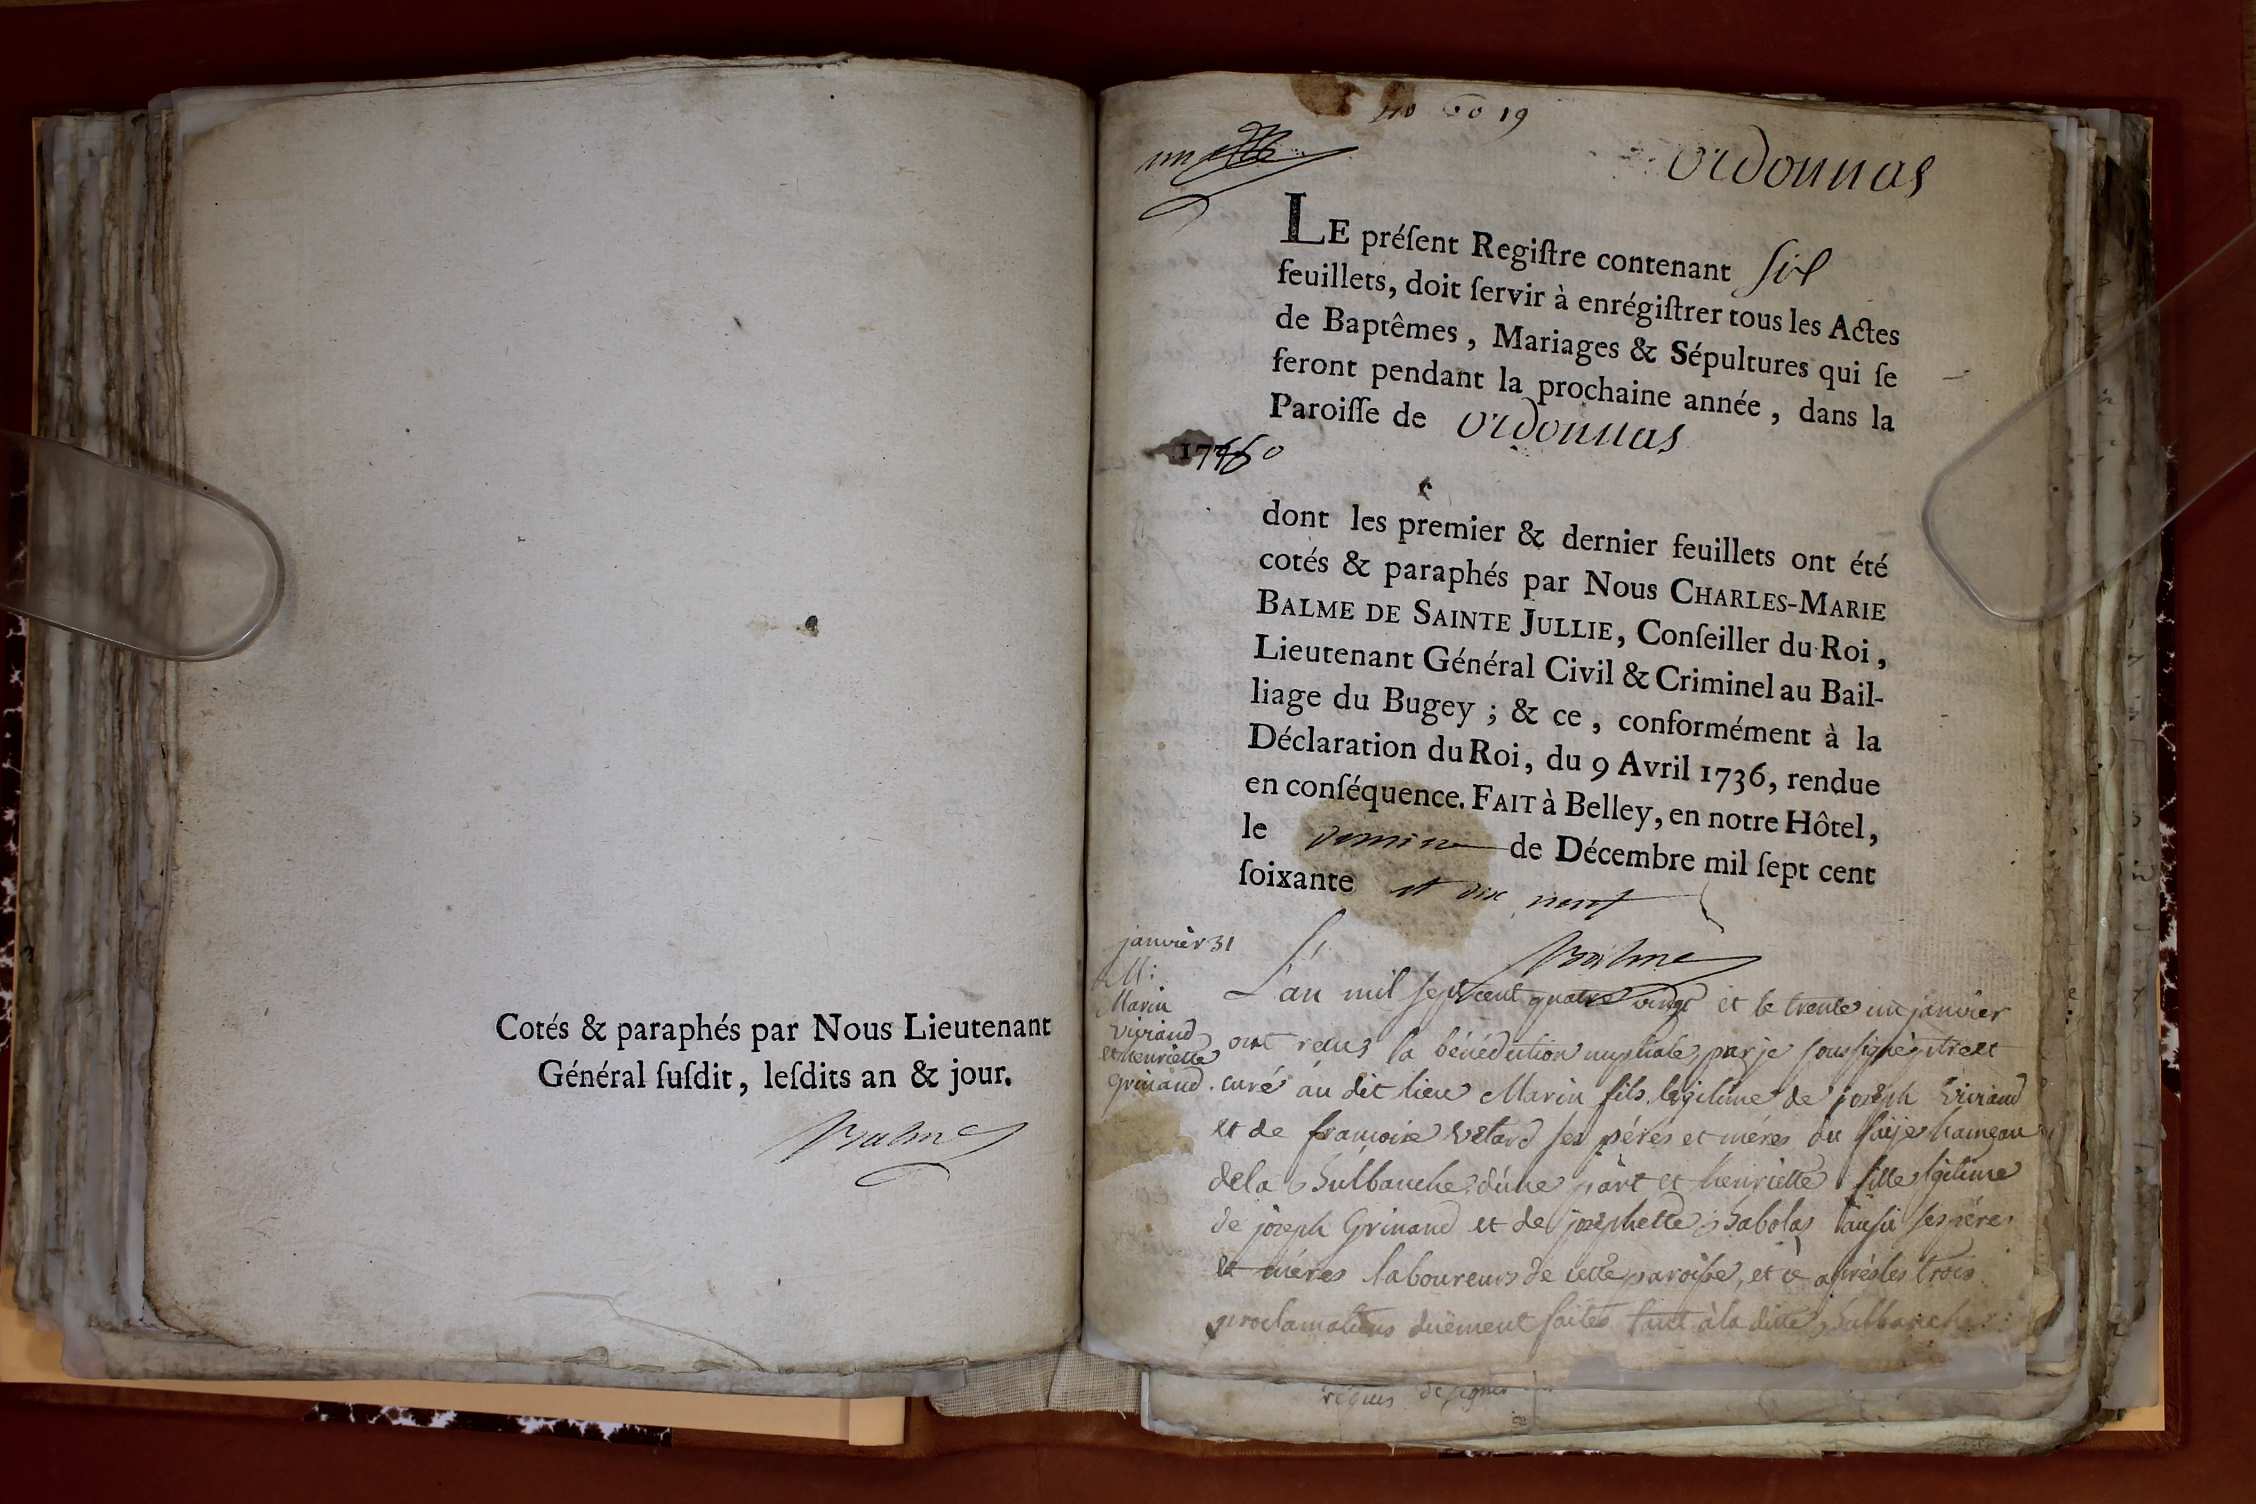 Cotés & paraphés par Nous Lieutenant
Général ſuſdit, leſdits an & jour.
Balme
40 60 19
ordonnas
LE préſent Regiſtre contenant six
feuillets, doit ſervir à enrégiſtrer tous les Actes
de Baptêmes, Mariages & Sépultures qui ſe
feront pendant la prochaine année, dans la
Paroiſſe de ordonnas
dont les premier & dernier feuillets ont été
cotés & paraphés par Nous CHARLES-MARIE
BALME DE SAINTE JULLIE, Conſeiller du Roi,
Lieutenant Général Civil & Criminel au Bail-
liage du Bugey ; & ce, conformément à la
Déclaration du Roi, du 9 Avril 1736, rendue
en conſéquence. FAIT à Belley, en notre Hôtel,
le de Décembre mil ſept cent
ſoixante et dix neuf
Balme
janvier 31
M:
Marin
Viviand
et henriette
Grinand.
L'an mil sept cent quatre vingt et le trente un janvier
ont reçus la bénédiction nuptiale par je soussigné
curé au dit lieu Marin fils légitime de joseph Viviand
et de francoise Vetard ses pérés et méres du hameau
de la d'une part et henriette fille
de joseph Grinand et de josephette aussi ses pére
et méres laboureurs de cette paroisse, et ce après les trois
proclamations duëment faites tant à la ditte
requis de signer